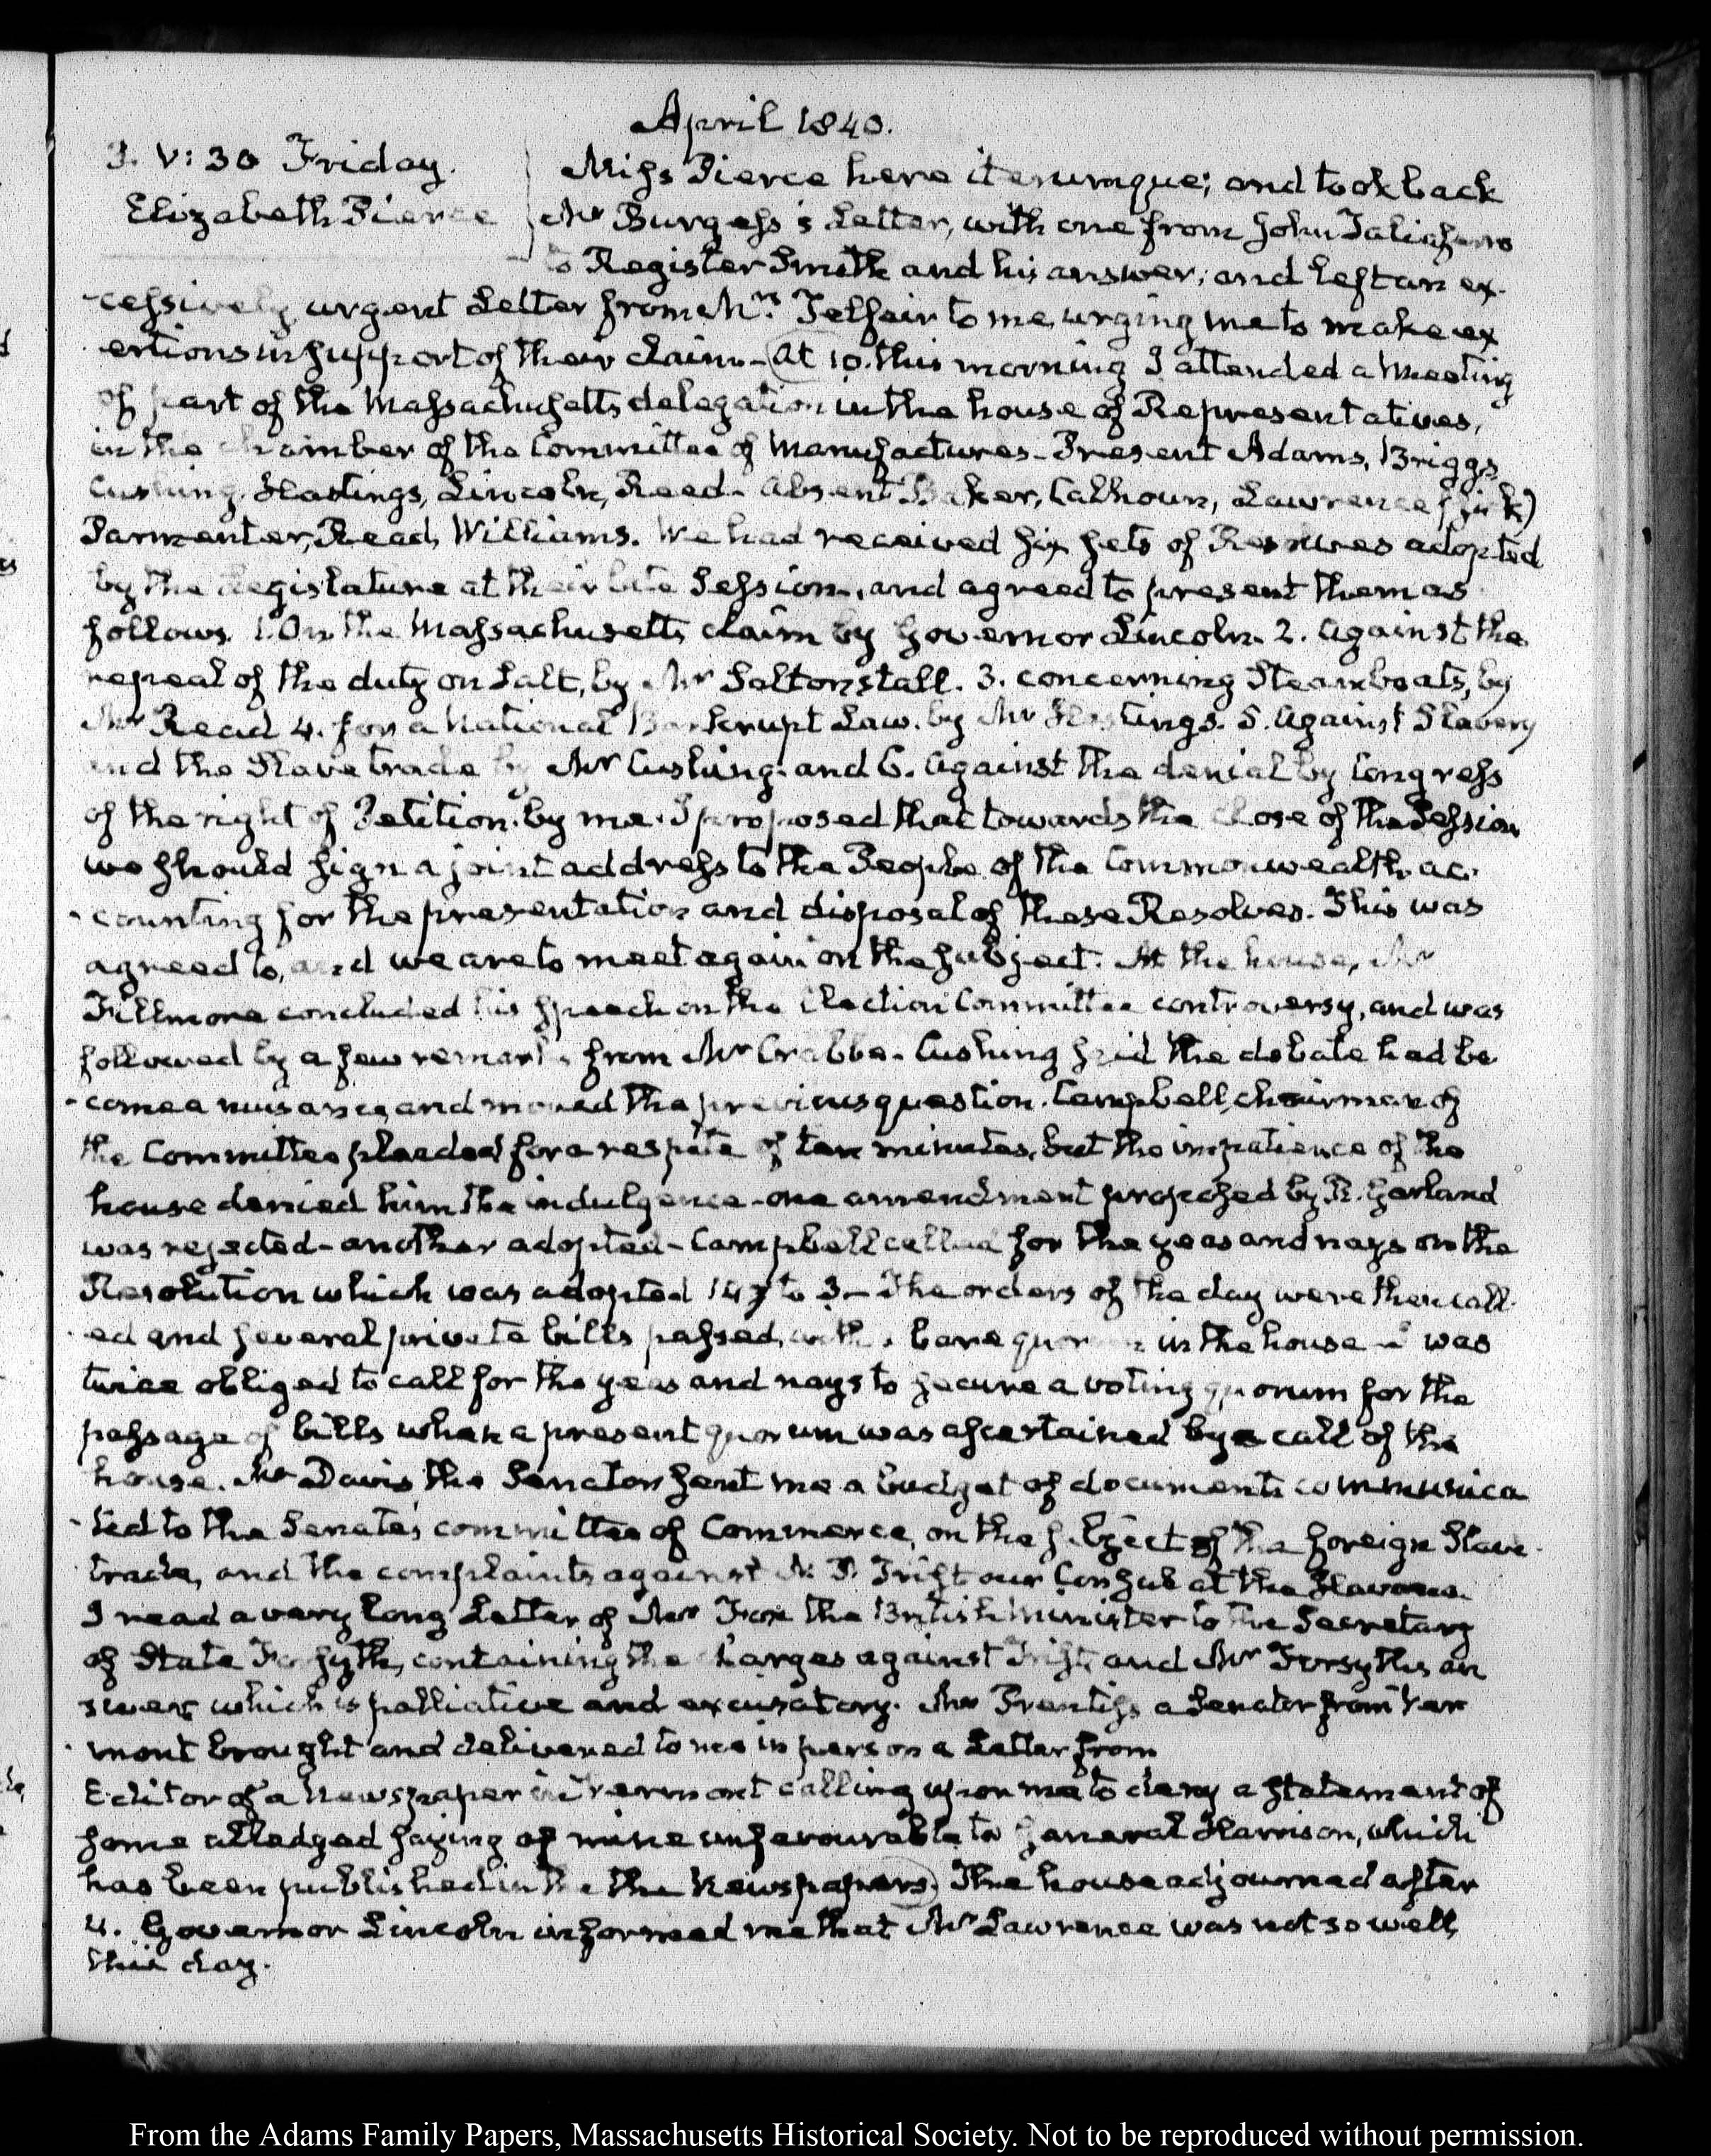 April 1840.
3. V:30 Friday.
Elizabeth Pierce
Miss Pierce here iterumque; and took back
Mr Burgess's Letter, with one from John Taliaferro
to Register Smith and his answer; and left an ex-
-cessively urgent Letter from Mrs. Telfair to me, urging me to make ex
ertions in support of their claim - At 10. this morning I attended a Meeting
of part of the Massachusetts delegation in the house of Representatives,
in the chamber of the Committee of Manufactures - Present Adams, Briggs,
Cushing, Hastings, Lincoln, Reed - absent Baker, Calhoun, Lawrence (sick)
Parmenter, Read, Williams. We had received six sets of Resolves adopted
by the Legislature at their late Session, and agreed to present them as
follows. 1. On the Massachusetts claim by Governor Lincoln. 2. Against the
repeal of the duty on Salt, by Mr Saltonstall. 3. concerning Steamboats, by
Mr Read 4. for a National Bankrupt Law. by Mr Hastings. 5. Against Slavery
and the Slave trade by Mr Cushing. and 6. Against the denial by Congress
of the right of Petition. by me. I proposed that towards the close of the Session
we should sign a joint address to the People of the Commonwealth ac-
-counting for the presentation and disposal of these Resolves. This was
agreed to, and we are to meet again on the subject. At the house, Mr
Fillmore concluded his speech on the Election Committee controversy, and was
followed by a few remarks from Mr Crabbe - Cushing said the debate had be
-come a nuisance, and moved the previous question. Campbell, chairman of
the Committee pleaded for a respite of ten minutes, but the impatience of the
house denied him the indulgence - one amendment proposed by R. Garland
was rejected - another adopted - Campbell called for the yeas and nays on the
Resolution which was adopted 147 to 3 - The orders of the day were then call-
ed and several private bills passed, with a bare quorum in the house - I was
twice obliged to call for the yeas and nays to secure a voting quorum for the
passage of bills when a present quorum was ascertained by a call of the
house. Mr Davis the Senator sent me a budget of documents communica
-ted to the Senate's committee of Commerce, on the subject of the foreign Slave-
trade, and the complaints against N. P. Trist our Consul at the Havana.
I read a very long Letter of Mr Fox the British Minister to the Secretary
of State Forsyth, containing the charges against Trist, and Mr Forsyth's an
swer which is palliative and excusatory. Mr Prentiss a Senator from Ver
-mont brought and delivered to me in person a Letter from
Editor of a Newspaper in Vermont calling upon me to deny a statement of
some alledged saying of mine unfavourable to General Harrison, which
has been published in the the Newspapers. The house adjourned after
4. Governor Lincoln informed me that Mr Lawrence was not so well
this day.
From the Adams Family Papers, Massachusetts Historical Society. Not to be reproduced without permission.